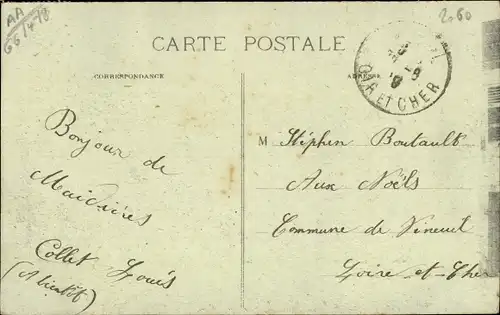 AA
66/478
2.60
CARTE POSTALE
CORRESPONDANCE
ADRESSE
LOIR ET CHER
Bonjour de
Collet Louis
(A bientôt)
M Stéphen Boutault
Aux Noëls
Commune de Vineuil
Loire-et-Cher